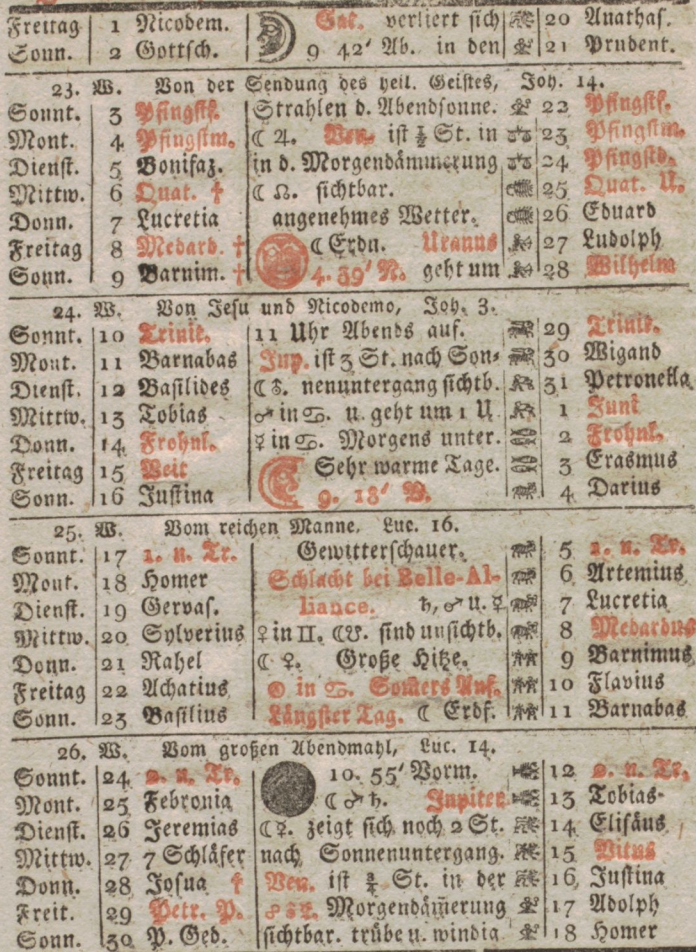 Freitag 1 Nicodem. Sat. verliert sich 20 Anathas.
Sonn. 2 Gottsch. 9 42' Ab. in den 21 Prudent.
23. W. Von der Sendung des heil. Geistes, Joh. 14.
Sonnt. 3 Pfingstf. Strahlen d. Abendsonne. 22 Pfingstf.
Mont. 4 Pfingstm. ☾ ♃. Ven. ist ½ St. in 23 Pfingstm.
Dienst. 5 Bonifaz. in d. Morgendämmerung 24 Pfingstd.
Mittw. 6 Quat. † ☾ ☊. sichtbar. 25 Quat. U.
Donn. 7 Lucretia angenehmes Wetter. 26 Eduard
Freitag 8 Medard. † ☾ Erdn. Uranus 27 Ludolph
Sonn. 9 Barnim. † 4. 39' N. geht um 28 Wilhelm
24. W. Von Jesu und Nicodemo, Joh. 3.
Sonnt. 10 Trinit. 11 Uhr Abends auf. 29 Trinit.
Mont. 11 Barnabas Jup. ist 3 St. nach Son- 30 Wigand
Dienst. 12 Basilides nenuntergang sichtb. 31 Petronella
Mittw. 13 Tobias ♂ in ♋. u. geht um 1 U 1 Juni
Donn. 14 Frohnl. ☿ in ♋. Morgens unter. 2 Frohnl.
Freitag 15 Veit Sehr warme Tage. 3 Erasmus
Sonn. 16 Justina 9. 18' V. 4 Darius
25. W. Vom reichen Manne, Luc. 16.
Sonnt. 17 1. n. Tr. Gewitterschauer. 5 1. n. Tr.
Mont. 18 Homer Schlacht bei Belle-Al- 6 Artemius
Dienst. 19 Gervas. liance. ♄, ♂ u. ☿ 7 Lucretia
Mittw. 20 Sylverius ♀ in II. ☾☋. sind unsichtb. 8 Medardus
Donn. 21 Rahel ☾ ♀. Große Hitze. 9 Barnimus
Freitag 22 Achatius ☉ in ♋. Som̃ers Anf. 10 Flavius
Sonn. 23 Basilius Längster Tag. ☾ Erdf. 11 Barnabas
26. W. Vom großen Abendmahl, Luc. 14.
Sonnt. 24 2. n. Tr. 10. 55' Vorm. 12 2. n. Tr.
Mont. 25 Febronia ☾ ♂ ♄. Jupiter 13 Tobias
Dienst. 26 Jeremias ☾ ☿. zeigt sich noch 2 St. 14 Elisäus
Mittw. 27 7 Schläfer nach Sonnenuntergang. 15 Vitus
Donn. 28 Josua † Ven. ist ¾ St. in der 16 Justina
Freit. 29 Petr. P. Morgendäm̃erung 17 Adolph
Sonn. 30 P. Ged. sichtbar. trübe u. windig 18 Homer